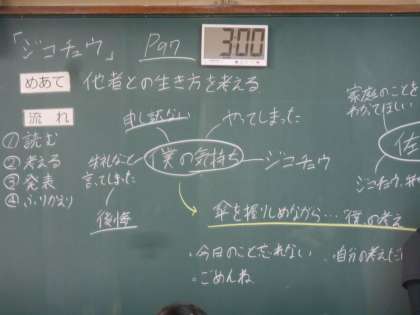 「ジコチュウ」 P97
3:00
めあて 他者との生き方を考える
流れ
①読む
②考える
③発表
④ふりかえり
申し訳ない
やってしまった
僕の気持ち
ジコチュウ
失礼なこと
言ってしまった
後悔
家庭のことを
わかってほしい
佐
ジコチュウ
傘を握りしめながら…僕の考え
・今日のこと忘れない
・自分の考えた
・ごめんね